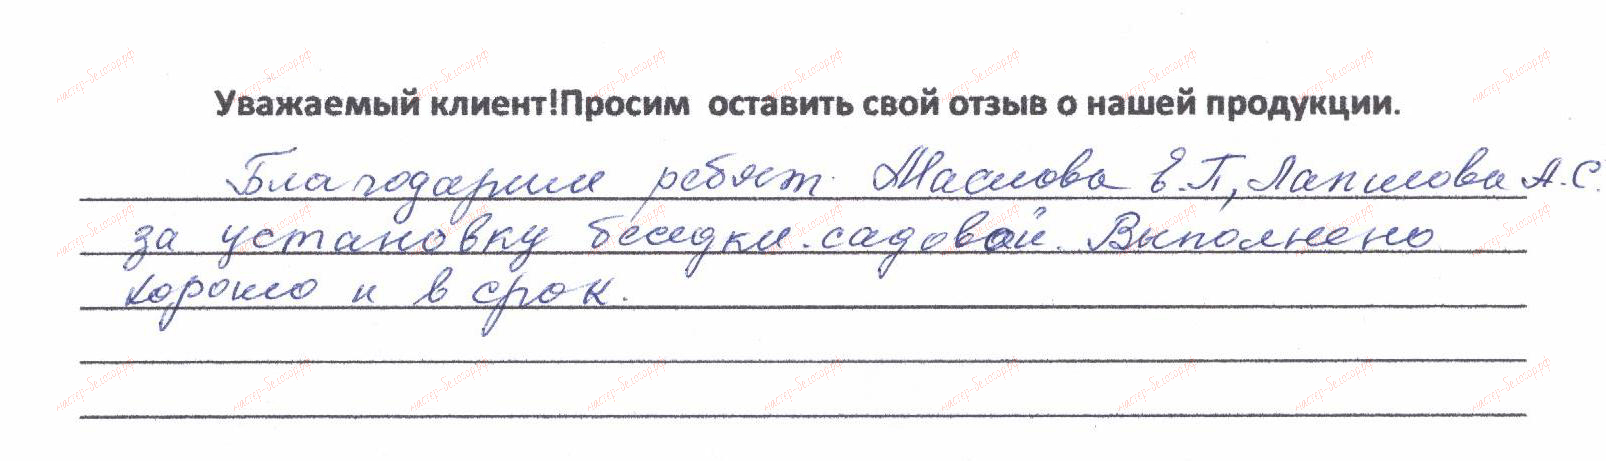 Уважаемый клиент!Просим оставить свой отзыв о нашей продукции.
Благодарим ребят Маслова Е.П, Лапшова А.С.
за установку беседки садовой. Выполнено
хорошо и в срок.